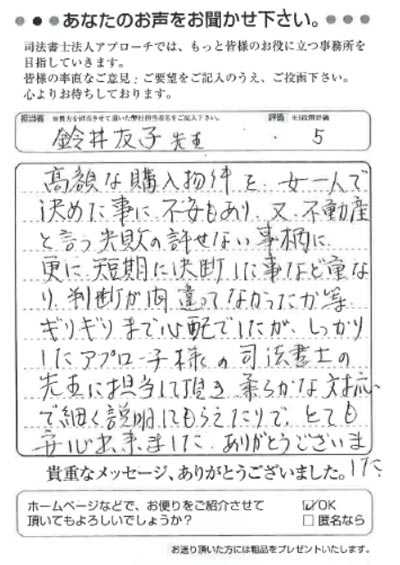 あなたのお声をお聞かせ下さい。
司法書士法人アプローチでは、もっと皆様のお役に立つ事務所を
目指していきます。
皆様の率直なご意見・ご要望をご記入のうえ、ご投函下さい。
心よりお待ちしております。
担当者 ※貴方を担当させて頂いた弊社担当者名をご記入下さい。 評価 ※5段階評価
鈴井友子 先生 5
高額な購入物件を、女一人で
決めた事に不安もあり、又、不動産
と言う失敗の許せない事柄に
更に短期に決断した事など重な
り、判断が間違ってなかったか等
ギリギリまで心配でしたが、しっかり
したアプローチ様の司法書士の
先生に担当して頂き柔らかな対応
で細く説明してもらえたりで、とても
安心出来ました。ありがとうございま
した
貴重なメッセージ、ありがとうございました。
ホームページなどで、お便りをご紹介させて
頂いてもよろしいでしょうか?
OK
匿名なら
お送り頂いた方には粗品をプレゼントいたします。